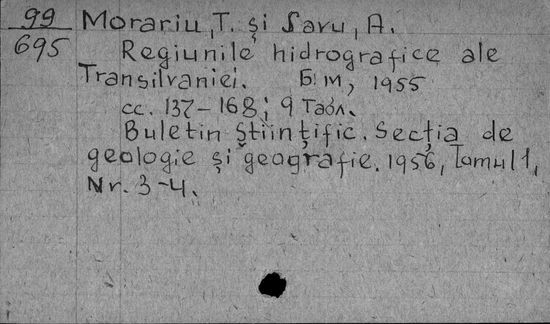 99
695
Morariu, T. și Savu, A.
Regiunile hidrografice ale
Transilvaniei. Б. м, 1955
cc. 137-168; 9 Табл.
Buletin Științific. Secția de
geologie și geografie. 1956, Tomul 1,
Nr. 3-4.